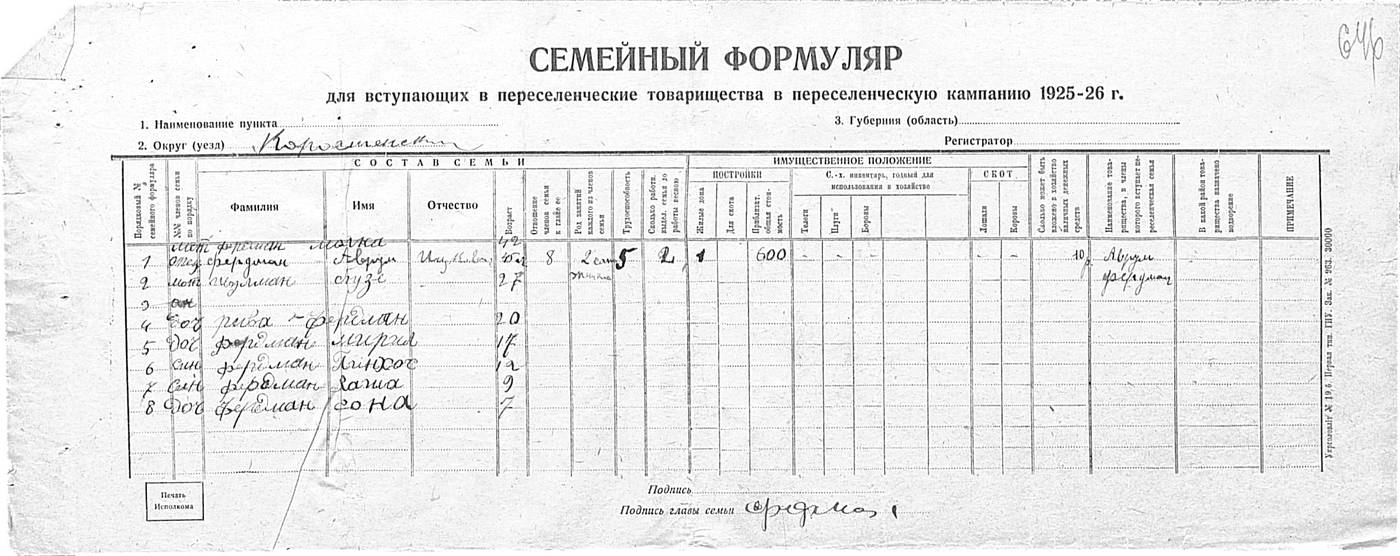 64
СЕМЕЙНЫЙ ФОРМУЛЯР
для вступающих в переселенческие товарищества в переселенческую кампанию 1925-26 г.
1. Наименование пункта
3. Губерния (область)
2. Округ (уезд) Коростенский
Регистратор
СОСТАВ СЕМЬИ
ИМУЩЕСТВЕННОЕ ПОЛОЖЕНИЕ
Порядковый № семейного формуляра
№№ членов семьи по порядку
Фамилия
Имя
Отчество
Возраст
Отношение членов семьи к главе ее
Род занятий каждого из членов семьи
Трудоспособность
Сколько работн. выдел. семья до работы весною
ПОСТРОЙКИ
Жилые дома
Для скота
Приблизит. общая стоимость
С.-х. инвентарь, годный для использования в хозяйстве
Телеги
Плуги
Бороны
СКОТ
Лошади
Коровы
Сколько может быть вложено в хозяйство наличных денежных средств
Наименование товарищества, в члены которого вступает переселенческая семья
В какой район товарищества назначено водворение
ПРИМЕЧАНИЕ
фердман 42
1 фердман Аврум 8 5 2 1 600 - - - - - 10 р Аврум фердман
2 27
3
4 доч рива - фердман 20
5 доч фердман мирил 17
6 син фердман Пинхос 12
7 син фердман 9
8 доч фердман сона 7
Печать Исполкома
Подпись
Подпись главы семьи
Первая тип. ГИУ. Зак. № 963. 30000